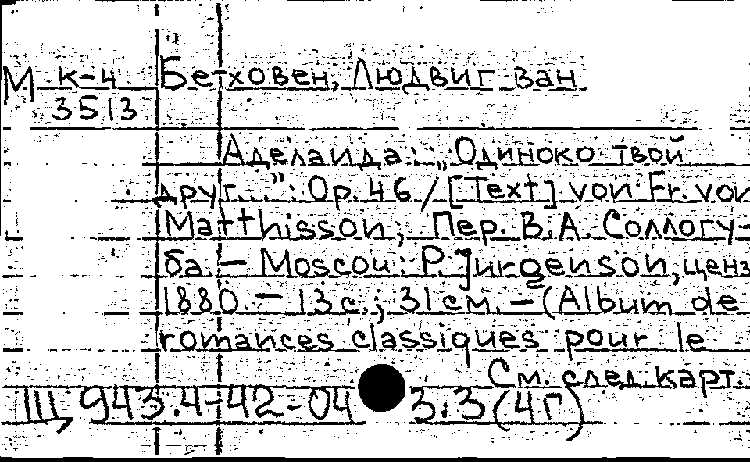 М к-4 Бетховен, Людвиг ван
3513
Аделаида: „Одиноко твой
друг...": Op. 46 / [Text] von Fr. von
Matthisson; Пер. В.А. Соллогу-
ба. — Moscou: P. Jurgenson, ценз.
1880. — 13 с.; 31 см. — (Album de
romances classiques pour le
См. след. карт.
Щ 943.4-42-04 3:3(4Г)